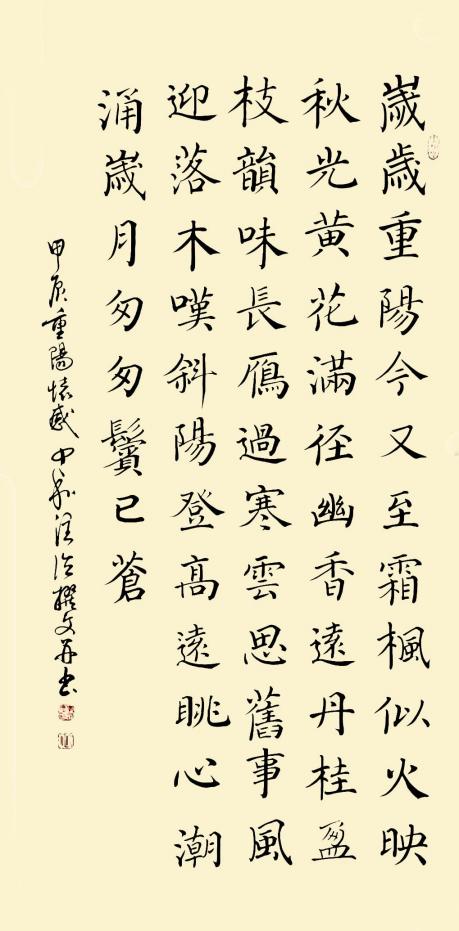 嵗歲重陽今又至霜楓似火映
秋光黄花滿径幽香遠丹桂盈
枝韻味長鴈過寒雲思舊事風
迎落木嘆斜陽登高遠眺心潮
涌嵗月匆匆鬢已蒼
甲辰重陽懷感中撰文并书